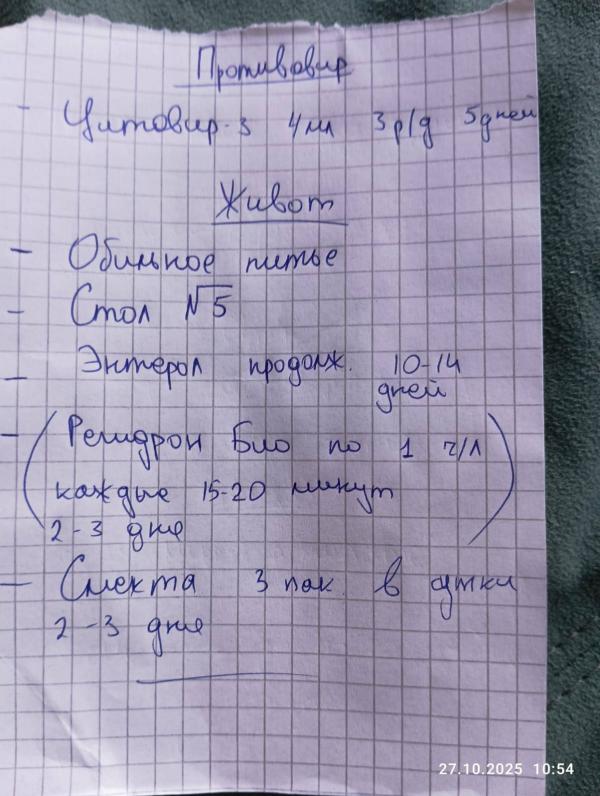 Противовир
- Цитовир-3 4мл 3р/д 5дней
Живот
- Обильное питье
- Стол №5
- Энтерол продолж. 10-14
дней
- (Регидрон Био по 1 ч/л
каждые 15-20 минут
2-3 дня)
- Смекта 3 пак. в сутки
2-3 дня
27.10.2025 10:54